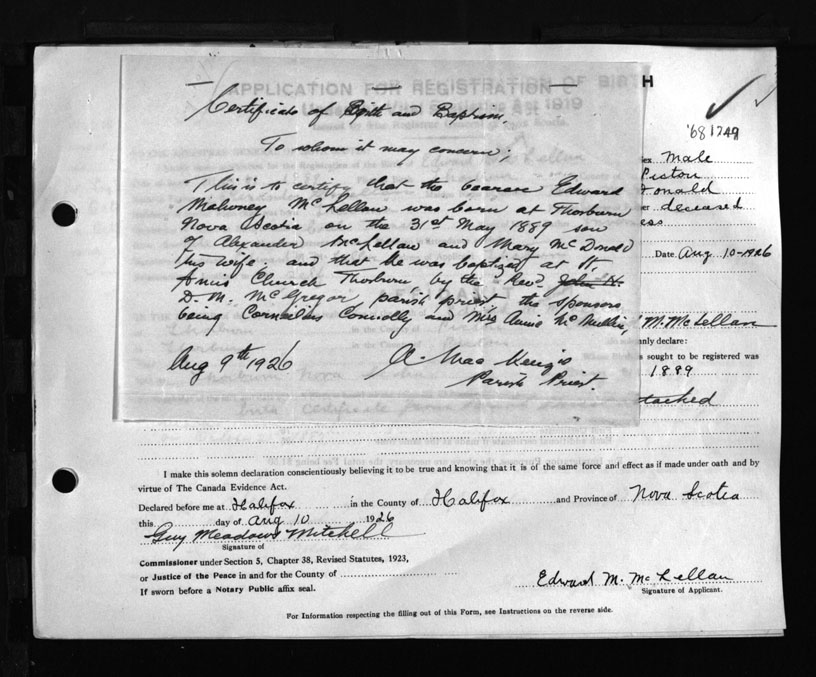 APPLICATION FOR REGISTRATION OF BIRTH
1919
Certificate of Birth and Baptism.
To whom it may concern;
This is to certify that the bearer Edward
Mahoney McLellan was born at Thorburn
Nova Scotia on the 31st May 1889 son
of Alexander McLellan and Mary McDonald
his wife. and that he was baptized at St.
Anns Church Thorburn, by the Rev. John N.
D. M. McGregor, parish priest, the sponsors
being Cornelius Connolly and Mrs Annie McMullin,
Aug 9th 1926
A. MacKenzie
Parish Priest.
'68 1749
Male
Pictou
Donald
deceased
ess
Date. Aug 10-1926
M. McLellan
nly declare:
s sought to be registered was
1889
tached
I make this solemn declaration conscientiously believing it to be true and knowing that it is of the same force and effect as if made under oath and by
virtue of The Canada Evidence Act.
Declared before me at Halifax in the County of Halifax and Province of Nova Scotia
this day of Aug 10 1926
Guy Meadows Mitchell
Signature of
Commissioner under Section 5, Chapter 38, Revised Statutes, 1923,
or Justice of the Peace in and for the County of
If sworn before a Notary Public affix seal.
Edward M. McLellan
Signature of Applicant.
For Information respecting the filling out of this Form, see Instructions on the reverse side.